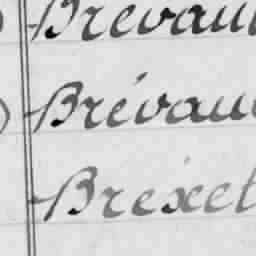 Brévau
Brévau
Brexet